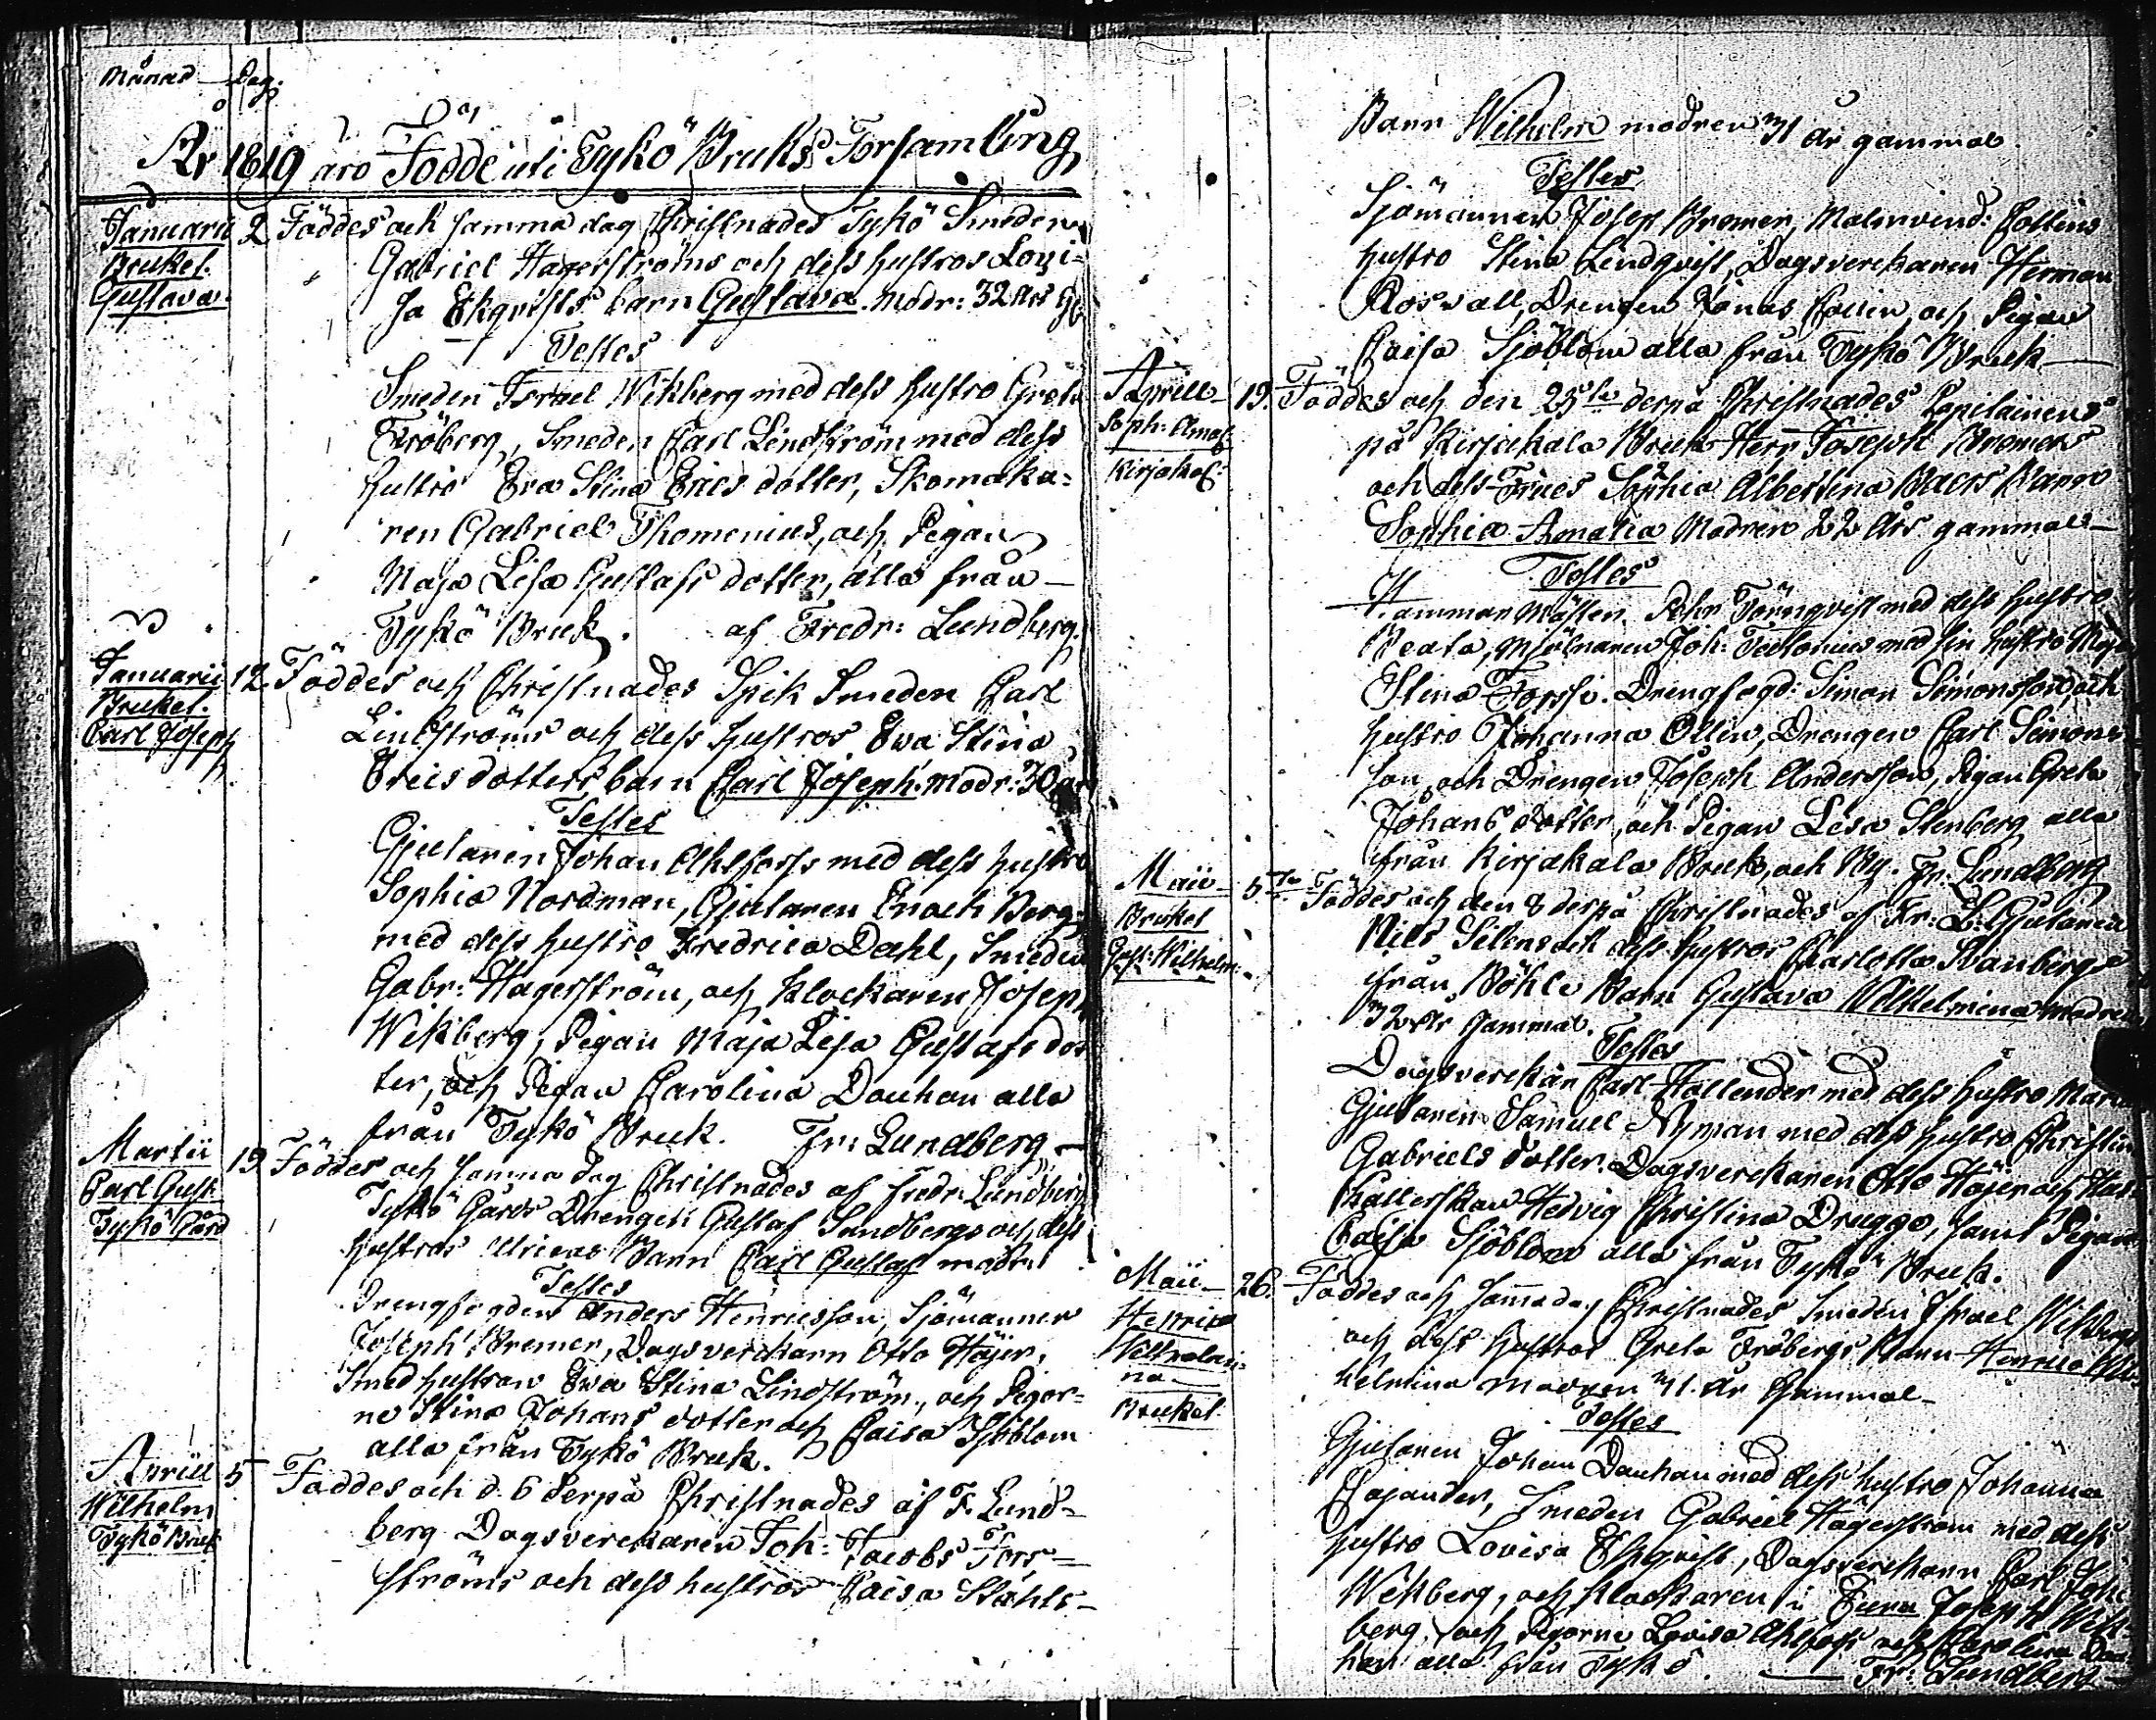 Månad Dag.
År 1819 äro Födde uti Tykö Bruks Församling
Januarii 2 Föddes och samma dag Christnades Tykö Smeden
Bruket. Gabriel Hagerströms och dess hustros Lovi=
Gustava. sa Ekqvists barn Gustava. Modr: 32 års
Testes
Smeden Israel Wikberg med dess hustro Greta
Fröberg, Smeden Carl Lindström med dess
hustro Eva Stina Erics dotter, Skomaka=
ren Gabriel Thomenius, och Pigan
Maja Lisa Gustafs dotter, alla från
Tykö Bruk. af Fredr: Lundberg.
Januarii 12. Föddes och Christnades Spik Smeden Carl
Bruket. Lindströms och dess hustros Ewa Stina
Carl Joseph Ericsdotters barn Carl Joseph. Modr: 30 år
Testes
Gjutaren Johan Ahlforss med dess hustro
Sophia Nordman, Gjutaren Enoch Berg,
med dess hustro Fredrica Dahl, Smeden
Gabr: Hagerström, och Klockaren Joseph
Wikberg, Pigan Maja Lisa Gustafs dot
ter, och Pigan Carolina Dauhan alla
från Tykö Bruk. Fr: Lundberg
Martii 19. Föddes och samma dag Christnades af Fredr: Lundberg
Carl Gust. Tykö Gårds Drengen Gustaf Sundbergs och dess
Tykö Gård hustros Ulricas Barn Carl Gustaf modr.
Testes
Drengfogden Anders Henricsson, Sjömannen
Joseph Bremer, Dagsverckarn Otto Höjer,
Smedhustrun Ewa Stina Lindström, och Pigor=
ne Stina Johans dotter och Caisa Sjöblom
alla från Tykö Bruk.
Aprill 5 Föddes och d. 6 derpå Christnades af F. Lund=
Wilhelm berg Dagsverckaren Joh: Jacobs Fors=
Tykö Bruk ströms och dess hustros Caisa Ståhls=
Barn Wilhelm modren 31 år gammal.
Testes
Sjömannen Joseph Bremer, Collins
hustro Stina Lindqvist, Dagsverckaren Herman
Rosvall, Drengen Jonas Collin, och Pigan
Caisa Sjöblom alla från Tykö Bruk
Aprill 19. Föddes och den 25te derpå Christnades Capitainens
Soph: Amal: på Kirjakala Bruk Herr Joseph Bremers
Kirjakal: och dess Frues Sophia Albertina Baers Barn
Sophia Amalia Modren 22 års gammal
Testes
Hammar Mästen Pehr Törnqvist med dess hustro
Beata, Mjölnaren Joh: med sin hustro Maja
Stina Forssi. Drengfogd: Simon Simonsson, och
hustro Johanna Ollin, Drengen Carl Simons
son, och Drengen Joseph Andersson, Pigan Greta
Johans dotter, och Pigan Lisa Stenberg alla
från Kirjakala Bruk, och By. Fr: Lundberg
Maii 5te Föddes och den 8 derpå Christnades af Fr: L: Gjutaren
Bruket Nils Silens och dess hustros Charlotta Svanbergs
Gust: Wilhelm: från Böhle Barn Gustava Wilhelmina modren
32 år gammal.
Testes
Dagsverckar: Carl Hollender med dess hustro Maria
Gjutaren Samuel Nyman med dess hustro Christina
Gabriels dotter. Dagsverckaren Otto Höjer och Hus
hållerskan Hedvig Christina Drugge, samt Pigan
Caisa Sjöblom alla från Tykö Bruk.
Maii 26. Föddes och samma dag Christnades Smeden Israel Wikbergs
Henrica och dess hustros Greta Fröbergs Barn Henrica Wil
Wilhelmi= helmina modren 31. år gammal
na
Bruket. Testes
Gjutaren Johan Dauhan med dess hustro Johanna
Cajander, Smeden Gabriel Hagerström med dess
hustro Lovisa Ekqvist, Dagsverckarn Carl Joh:
Wikberg, och Klockaren i Finn Joseph Wik=
berg, och Pigorne Lovisa Ahlfors och Carolina Dau=
han alla från Tykö. Fr: Lundberg